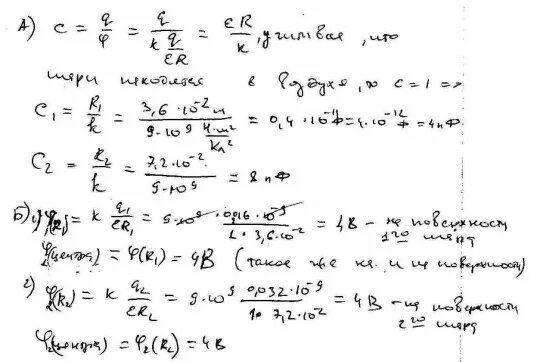 А) C = q/φ = q/(k q/(εR)) = εR/k, учитывая, что
шары находятся в воздухе, то C = 1 =>
C₁ = R₁/k = 3,6·10⁻² м/(9·10⁹ Н·м²/Кл²) = 0,4·10⁻¹¹ Ф = 4·10⁻¹² Ф = 4 пФ
C₂ = R₂/k = 7,2·10⁻²/(9·10⁹) = 8 пФ
Б) 1) φ(R₁) = k q₁/(εR₁) = 9·10⁹ · 0,016·10⁻⁹/(1·3,6·10⁻²) = 4 В – на поверхности 1го шара
φ(центра) = φ(R₁) = 4 В (такое же как и на поверхности)
2) φ(R₂) = k q₂/(εR₂) = 9·10⁹ 0,032·10⁻⁹/(1· 7,2·10⁻²) = 4 В – на поверхности 2го шара
φ₂(центра) = φ₂(R₂) = 4 В